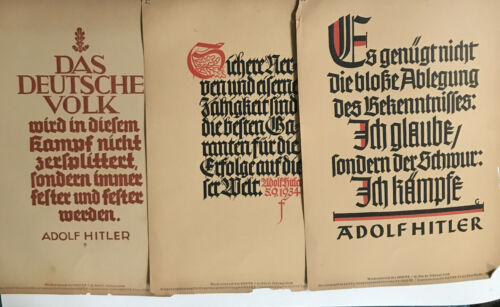 DAS
DEUTSCHE
VOLK
wird in diesem
Kampf nicht
zersplittert,
sondern immer
fester und fester
werden.
ADOLF HITLER
Sichere Ner-
ven und eiserne
Zähigkeit sind
die besten Ga-
ranten für die
Erfolge auf die-
ser Welt.
Adolf Hitler
5.9.1934
Es genügt nicht
die bloße Ablegung
des Bekenntnisses:
Ich glaube/
sondern der Schwur:
Ich kämpfe
ADOLF HITLER